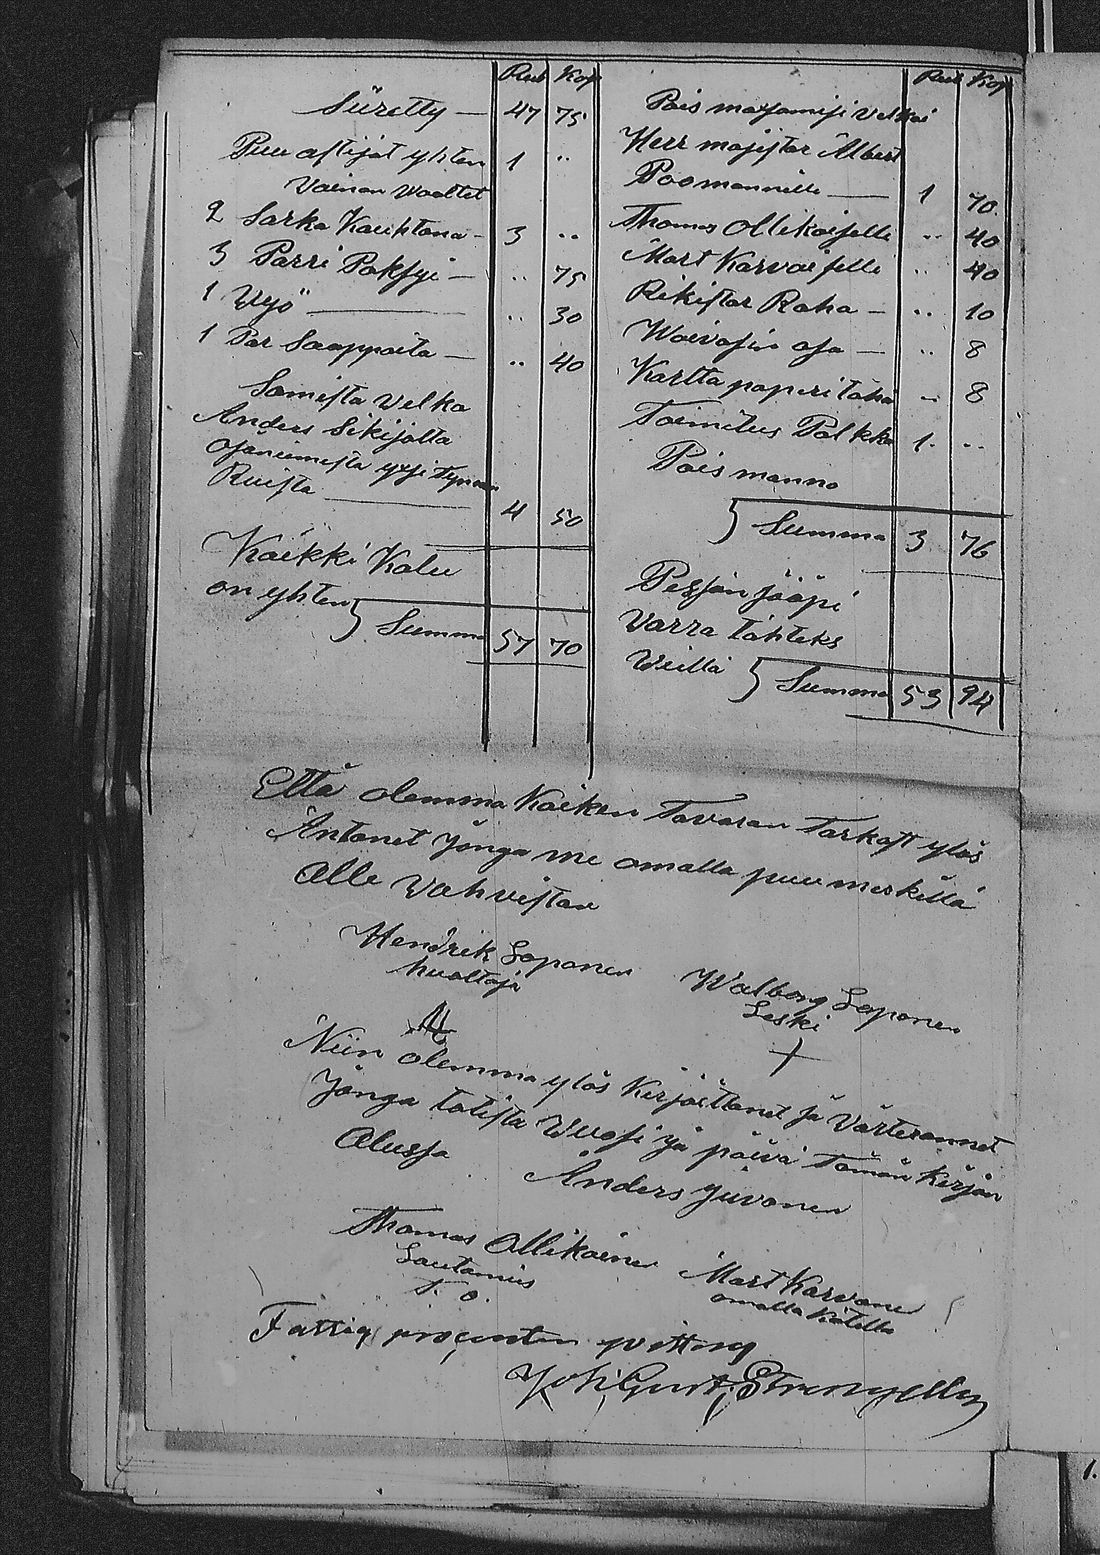 Rub Kop
Siiretty — 47 75
Puu astijat yhten 1 ..
Vainan Waattet
2 Sarka Kauhtana - 3 ..
3 Parri Paksyi — .. 75
1 Wyö — .. 30
1 Par Saappaita — .. 40
Samista Velka
Anders Sikijalta
Ojaniemesta yxsi tynnuri
Ruista — 4 50
Kaikki Kalu
on yhten } Summa 57 70
Rub Kop
Pois maxamisi Velkai
Herr majistar Albert
Poomannille — 1 70.
Thomas Ollikaiselle .. 40
Mart Karvaiselle .. 40
Rikistar Raha — .. 10
Waivasin osa — .. 8
Kartta paperi tähä .. 8
Toimitus Palkka 1. ..
Pois manno
} Summa 3 76
Pessän jääpi
Varra tähteks
Weillä } Summa 53 94
Että olemma Kaiken Tavaran Tarkast ylös
Antanet Jonga me omalla puumerkillä
Alle Vahvistan
Hendrik Soponen
huoltaja
Walborg Soponen
Leski
Niin olemma ylös Kirjoittanet ja Värteerannet
Jonga totista Wuosi ja päivä tämän Kirjan
Alussa Anders Juvonen
Thomas Ollikainen
Lautamies
T. o.
Mart Karvane
omalla Kätella
Fattig procenten qvitterg